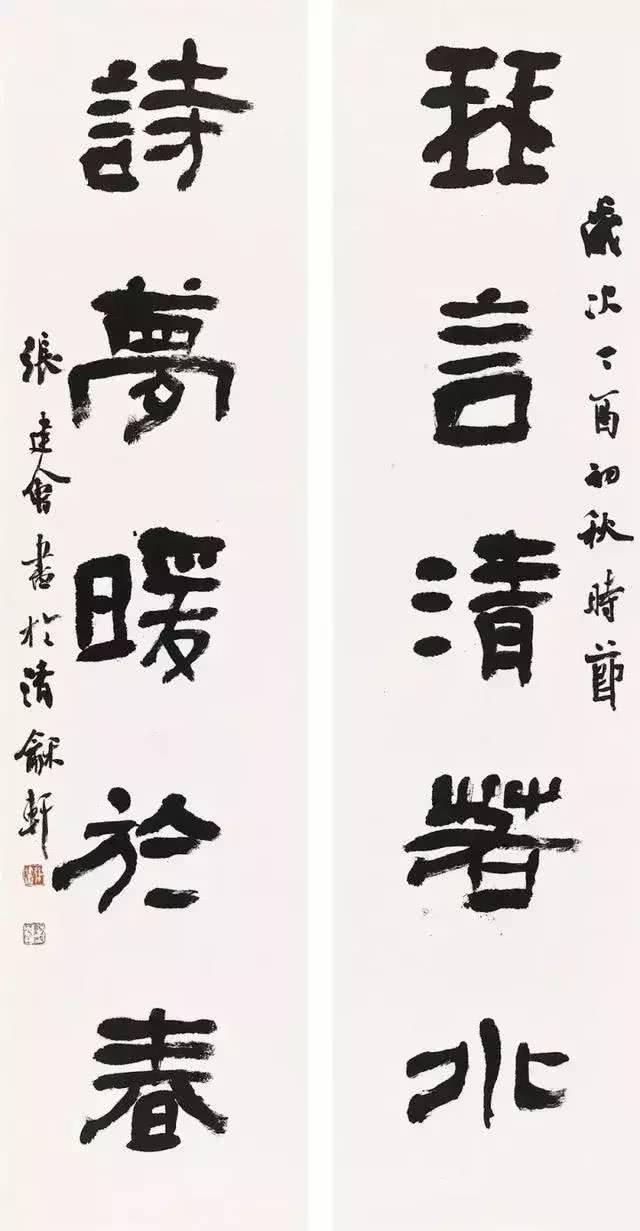 歲次丁酉初秋時節
珡言清若水
詩夢暖於春
張建會書於清龢軒